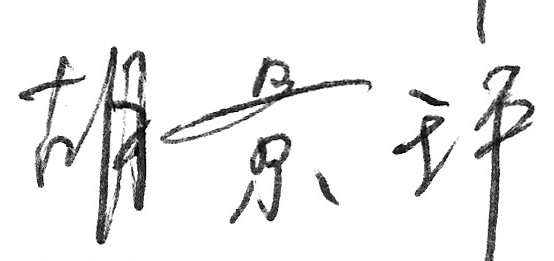 胡景评